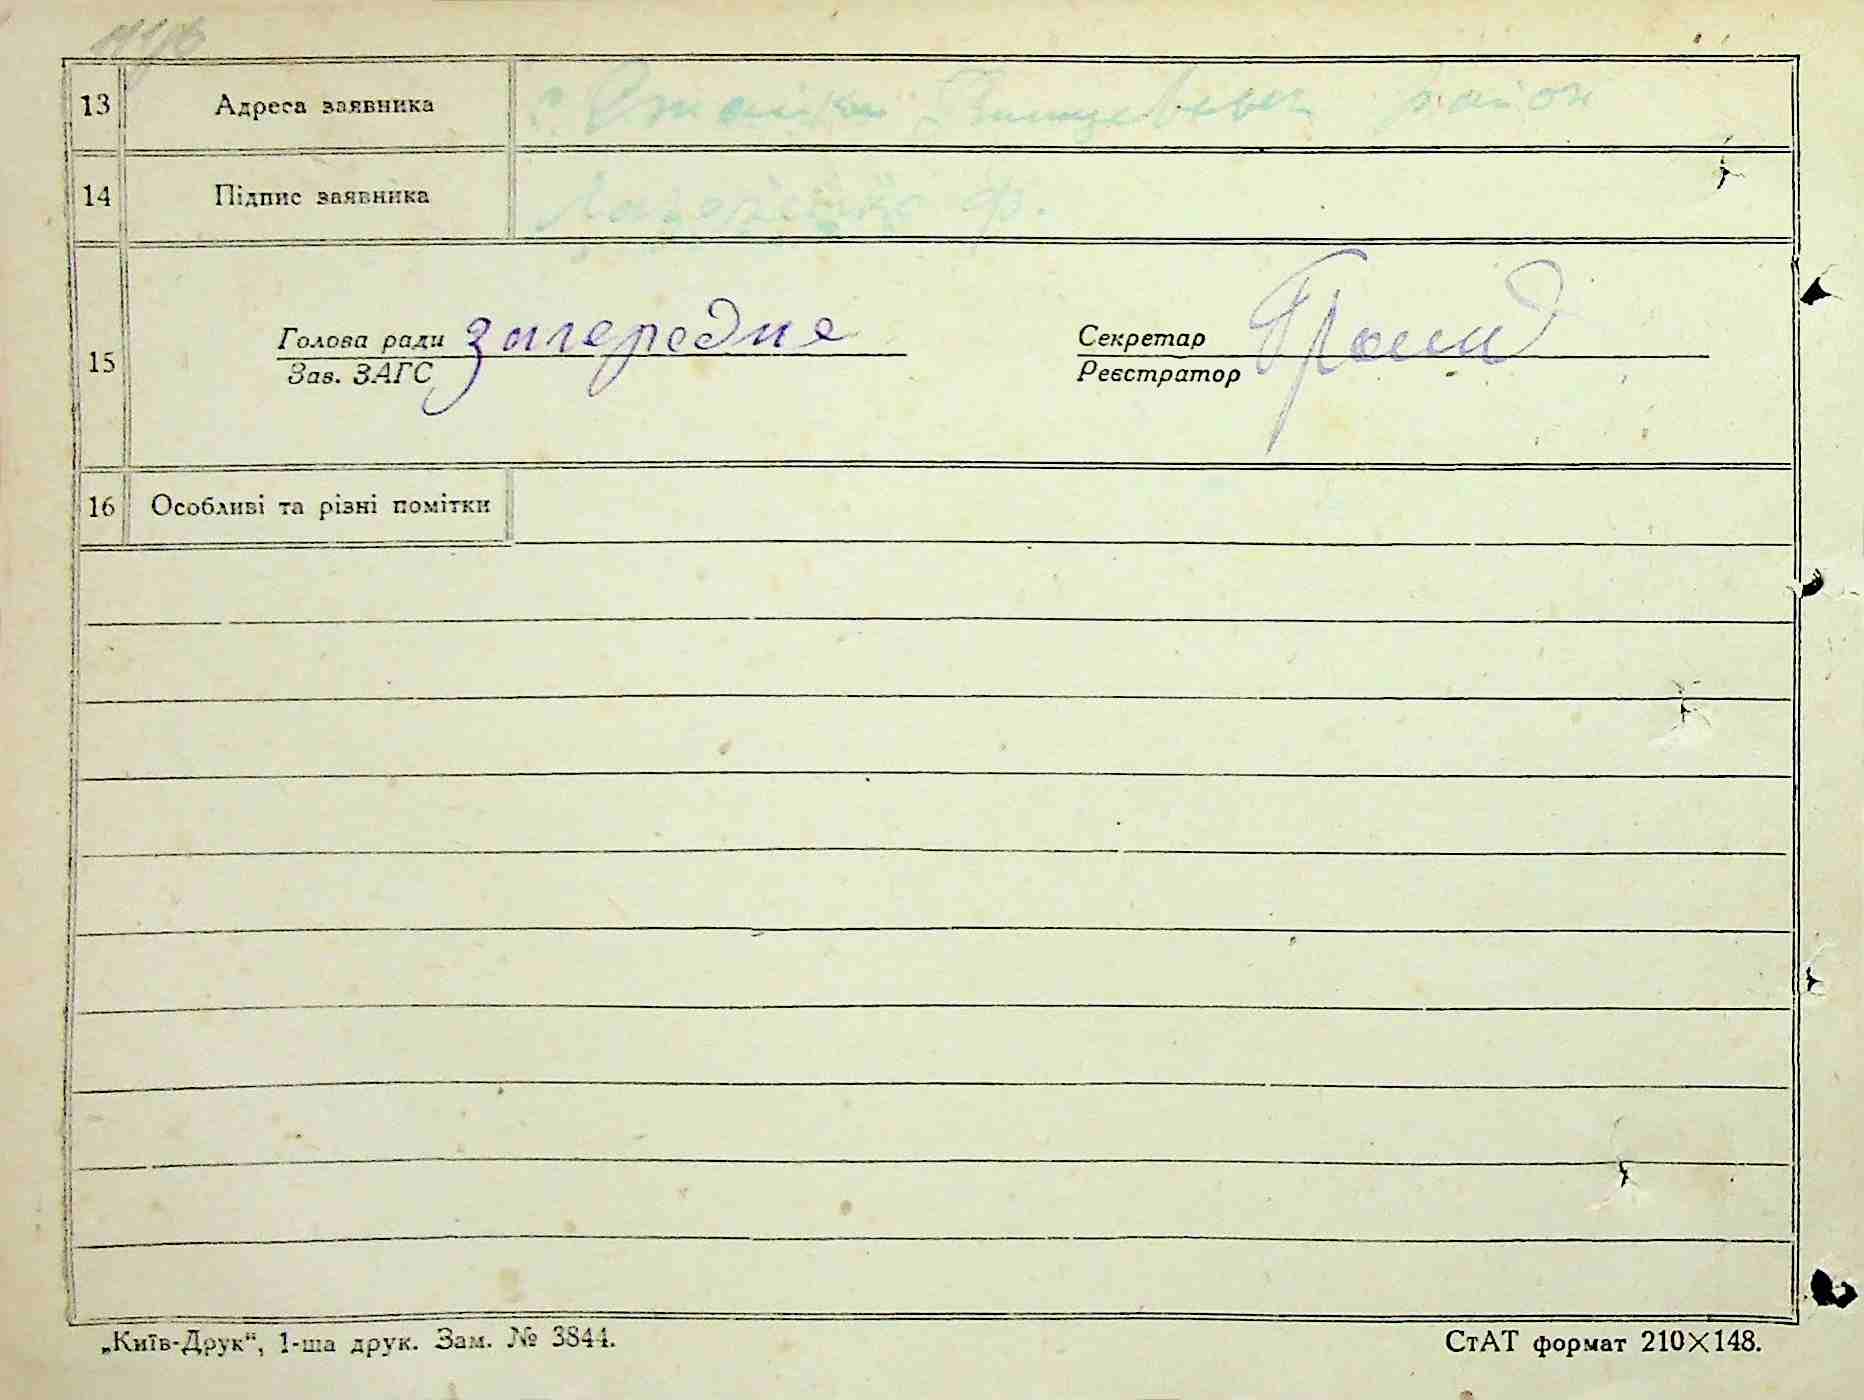 13 Адреса заявника район
14 Підпис заявника ф.
Голова ради загередне Секретар
15
Зав. ЗАГС Реєстратор
16 Особливі та різні помітки
„Київ-Друк“, 1-ша друк. Зам. № 3844. СтАТ формат 210×148.